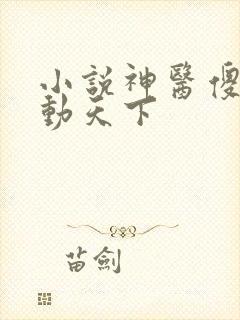 小說神醫傻
動天下
苗劍